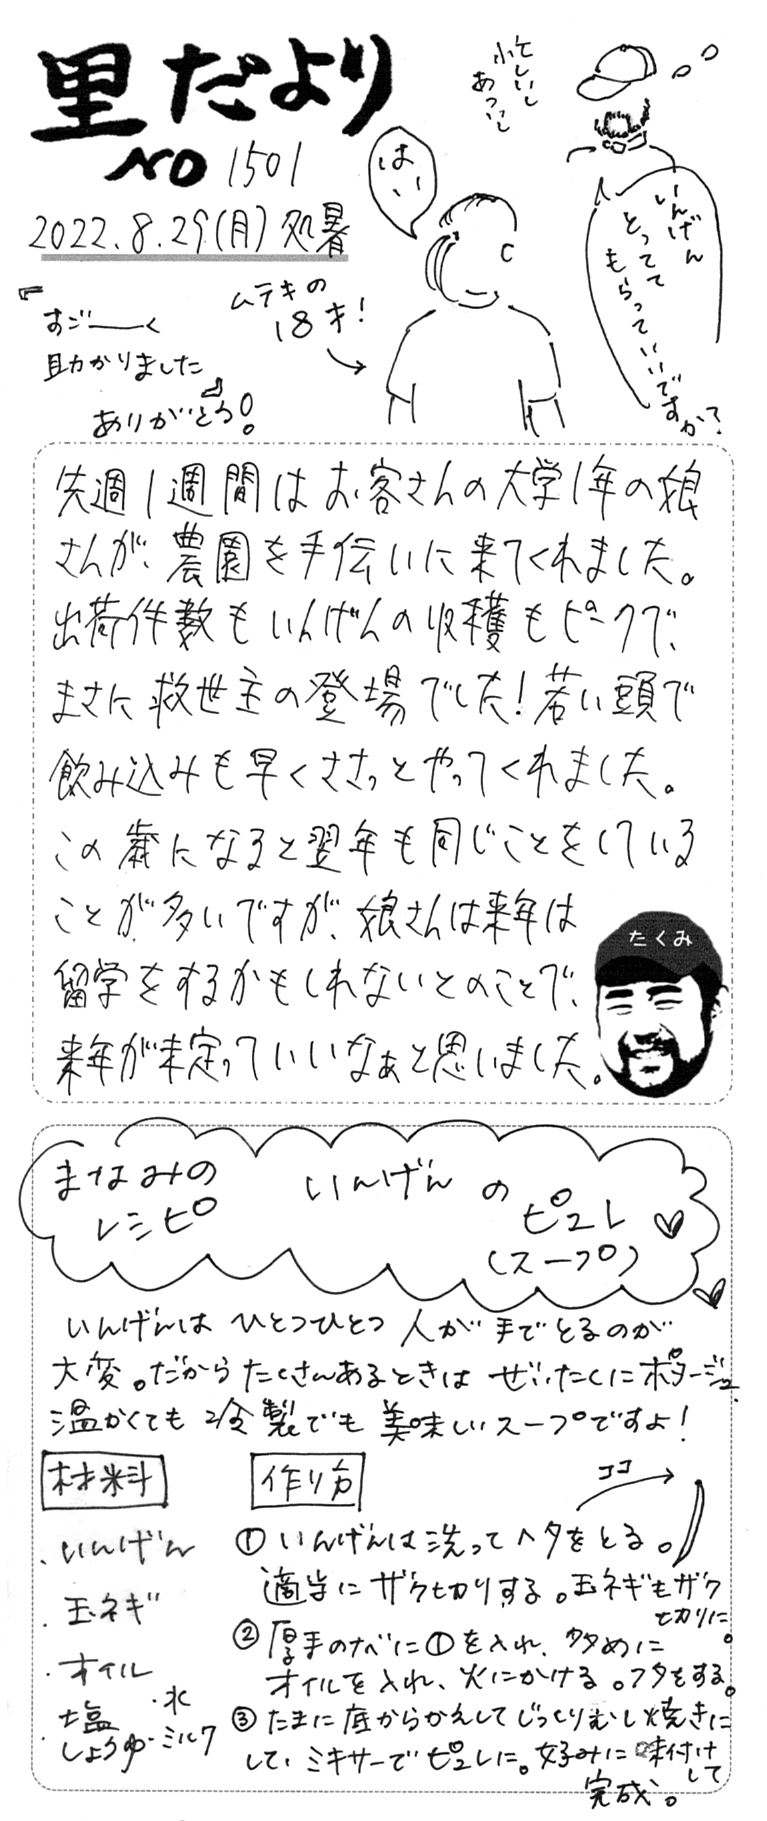 里だより
NO 1501
2022.8.29(月)処暑
忙しいし
あついし
はい
いんげん
とってて
もらっていいですか?
ムテキの
18才!
『すごーーく
助かりました』
ありがとう!
先週1週間はお客さんの大学1年の娘
さんが、農園を手伝いに来てくれました。
出荷件数もいんげんの収穫もピークで、
まさに救世主の登場でした!若い頭で
飲み込みも早くささっとやってくれました。
この歳になると翌年も同じことをしている
ことが多いですが、娘さんは来年は
留学をするかもしれないとのことで、
来年が未定っていいなぁと思いました。
たくみ
まなみの
レシピ
いんげんの
ピュレ
(スープ)
いんげんは ひとつひとつ 人が手でとるのが
大変。だからたくさんあるときは ぜいたくにポタージュ。
温かくても冷製でも美味しいスープですよ!
材料
・いんげん
・玉ネギ
・オイル
・塩 ・水
・しょうゆ・ミルク
作り方
ココ
① いんげんは洗ってヘタをとる。
適当にザク切りする。玉ネギもザク
切りに。
② 厚手のナベに①を入れ、多めに
オイルを入れ、火にかける。フタをする。
③ たまに底からかえしてじっくりむし焼きに
して、ミキサーでピュレに。好みに味付け
して
完成。